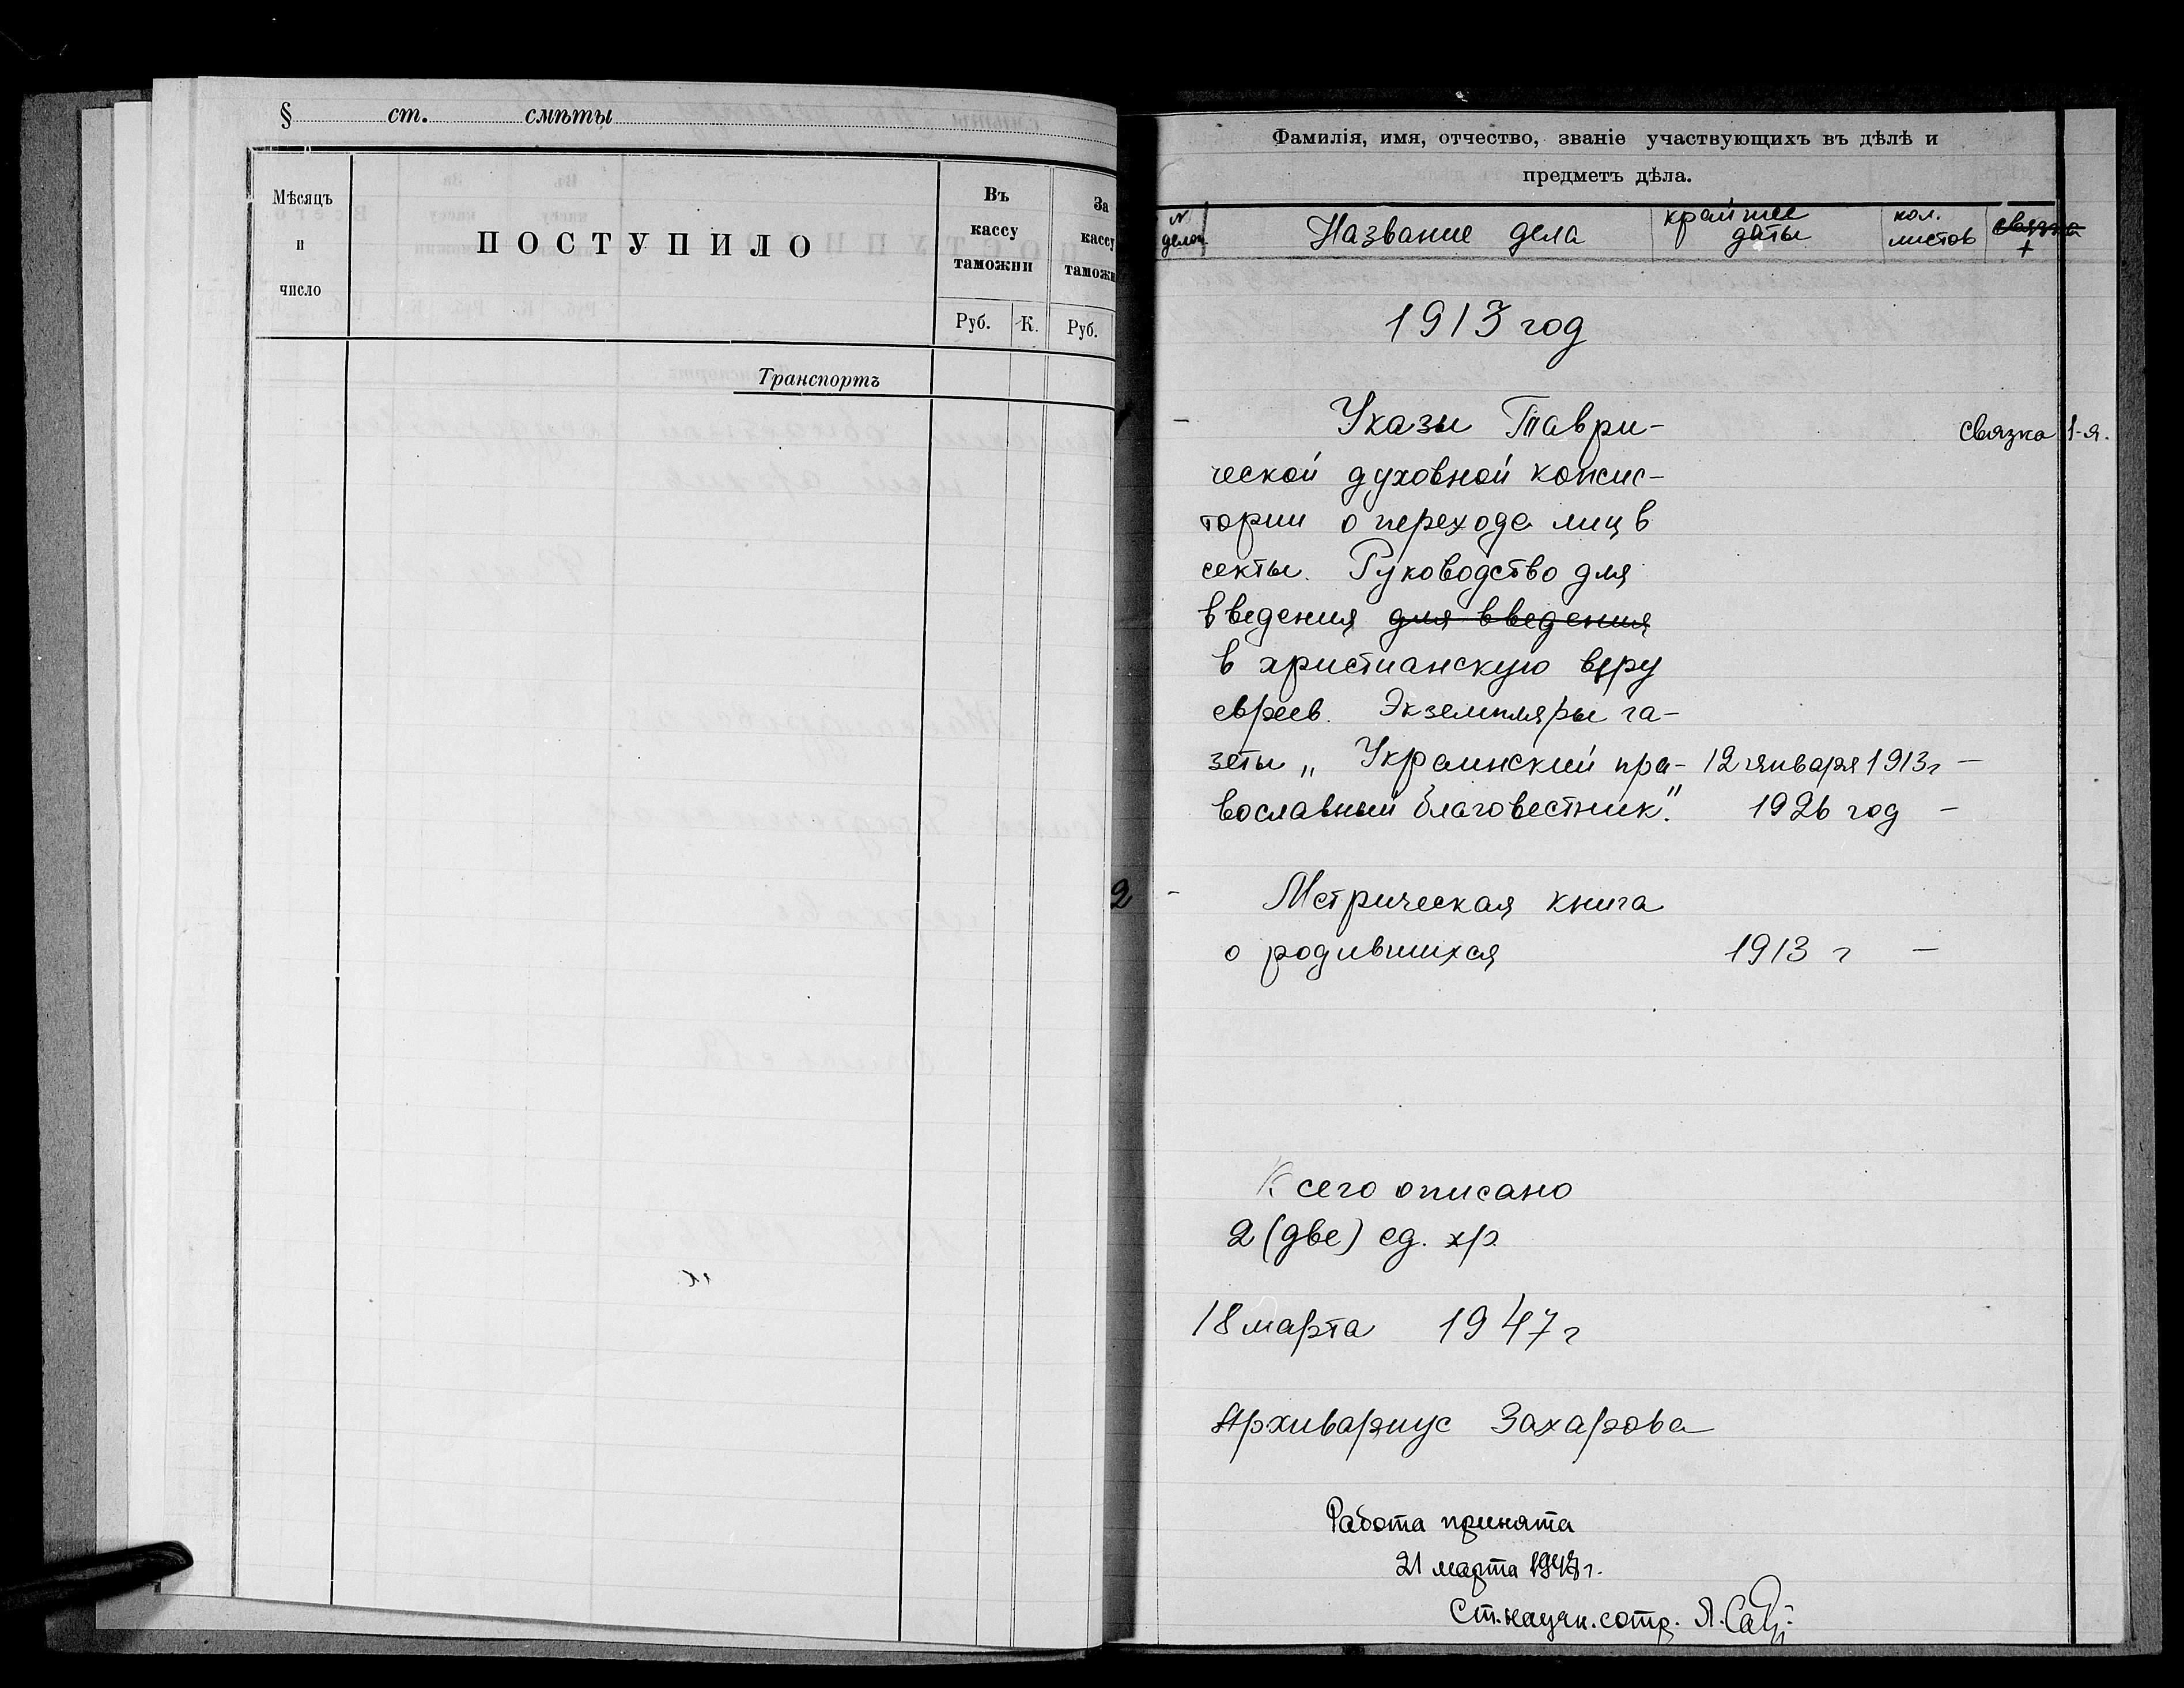 § ст. смѣты
Мѣсяцъ и число
ПОСТУПИЛО
Въ кассу таможни
За кассу
Руб. К. Руб.
Транспортъ
Фамилія, имя, отчество, званіе участвующихъ въ дѣлѣ и
предметъ дѣла.
N дела
Название дела
крайние даты
кол. листов
связка
+
1913 год
1 - Указы Таври-
связка 1-я.
ческой духовной консис-
тории о переходе лиц в
секты. Руководство для
введения для введения
в христианскую веру
евреев. Экземпляры га-
зеты „Украинский пра- 12 января 1913 г -
вославный благовестник." 1926 год -
2 - Метрическая книга
о родившихся 1913 г -
Всего описано
2 (две) ед. хр.
18 марта 1947 г
Архивариус Захарова
Работа принята
21 марта 1947 г.
Ст. научн. сотр.